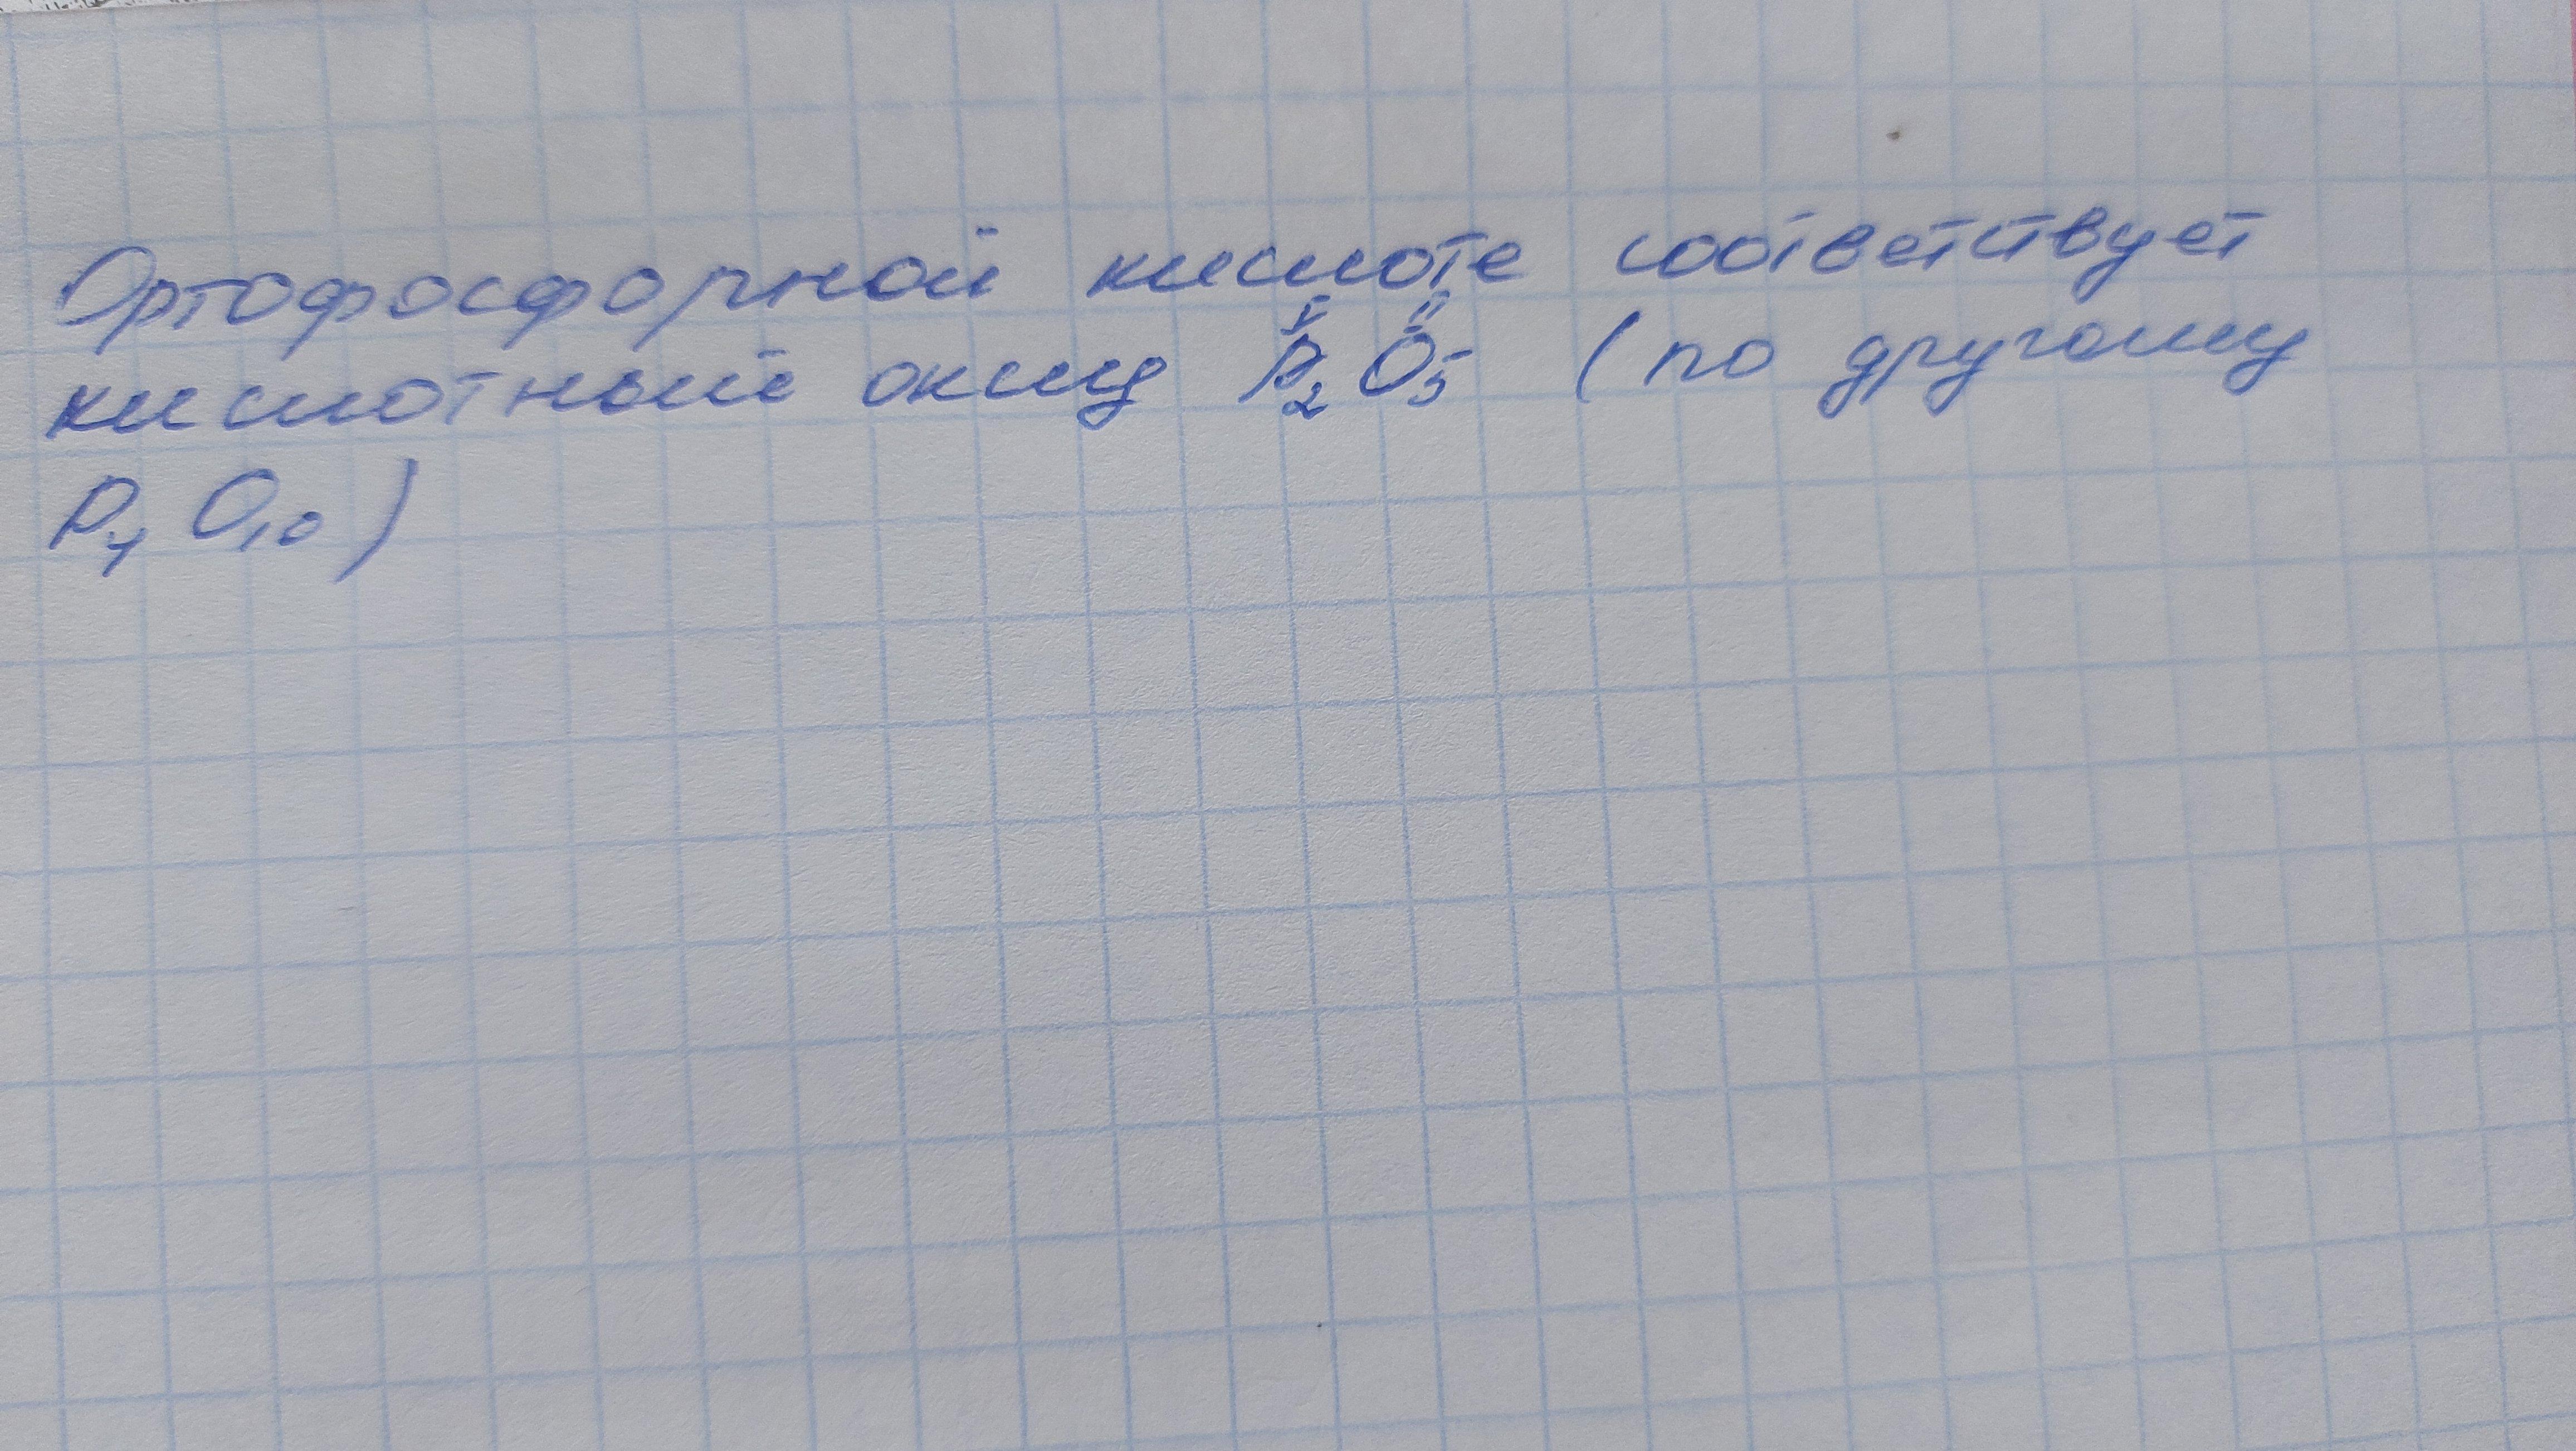 Ортофосфорной кислоте соответствует
кислотный оксид P₂O₅ (по другому
P₄O₁₀)